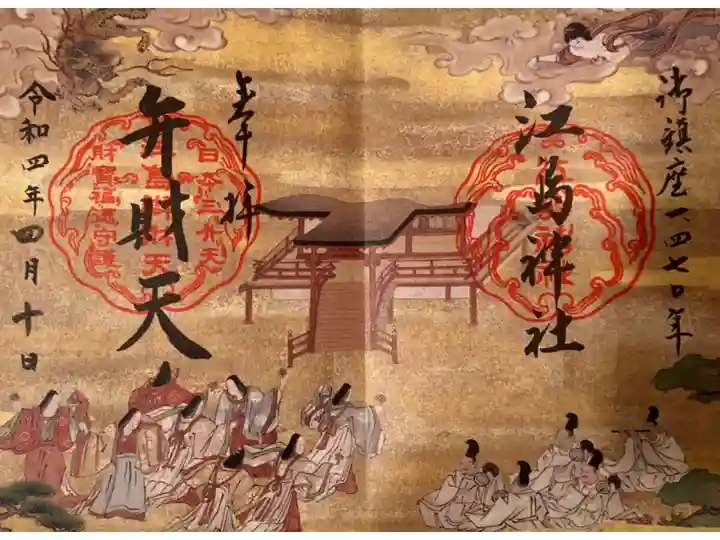 御鎮座一、四七〇年
江島神社
奉拝
弁財天
日本三弁天
江島弁財天
財寳福徳守護
令和四年四月十日